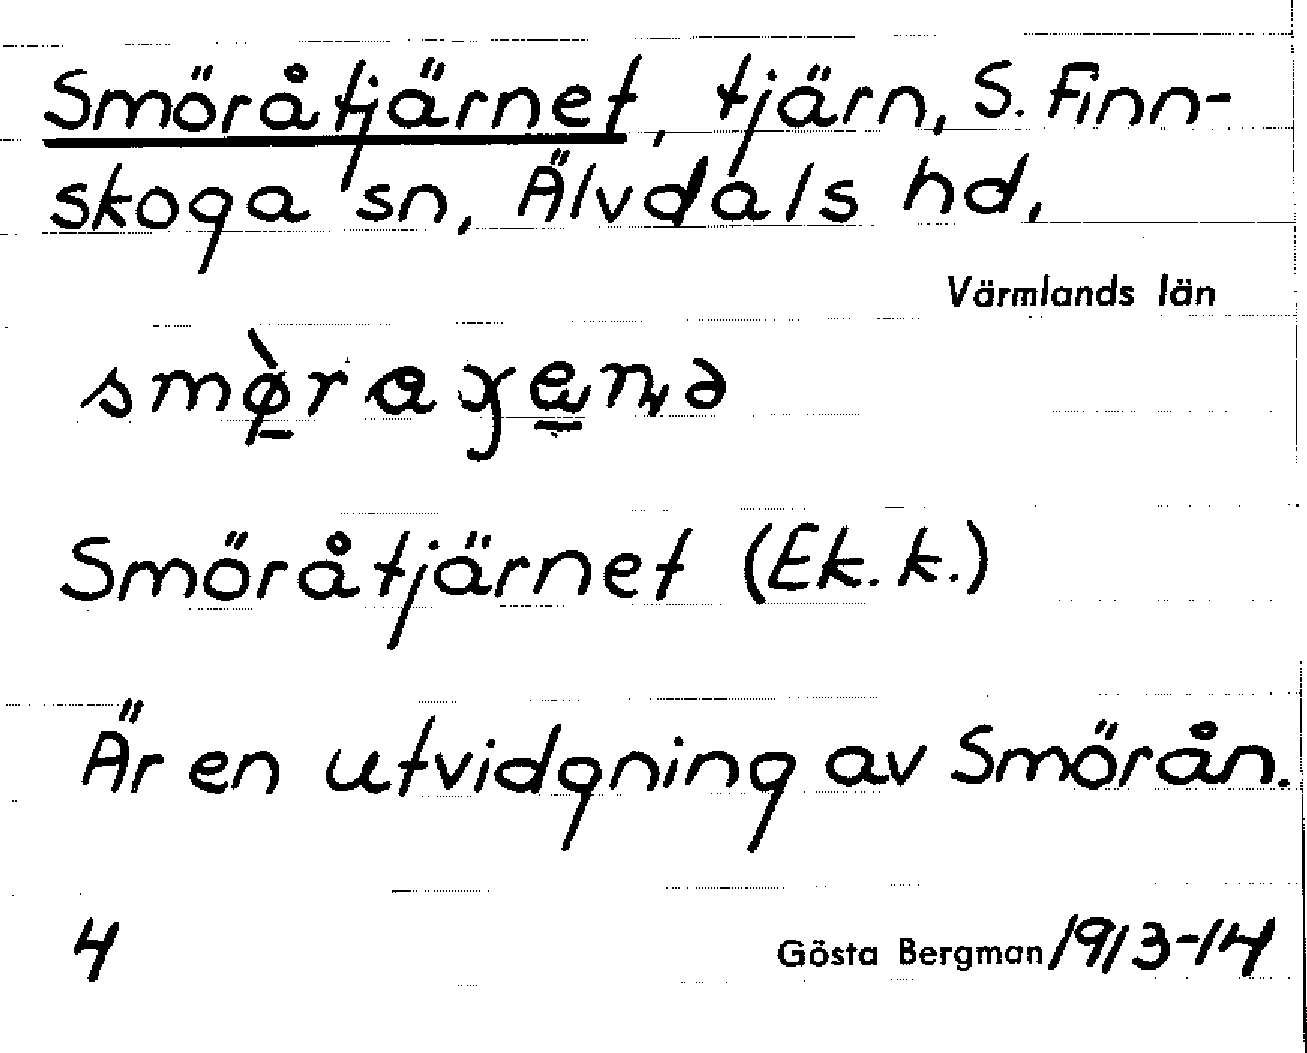 Smöråtjärnet, tjärn, S. Finn-
skoga sn, Älvdals hd,
Värmlands län
Smöråtjärnet (Ek. k.)
Är en utvidgning av Smörån.
4
Gösta Bergman 1913-14